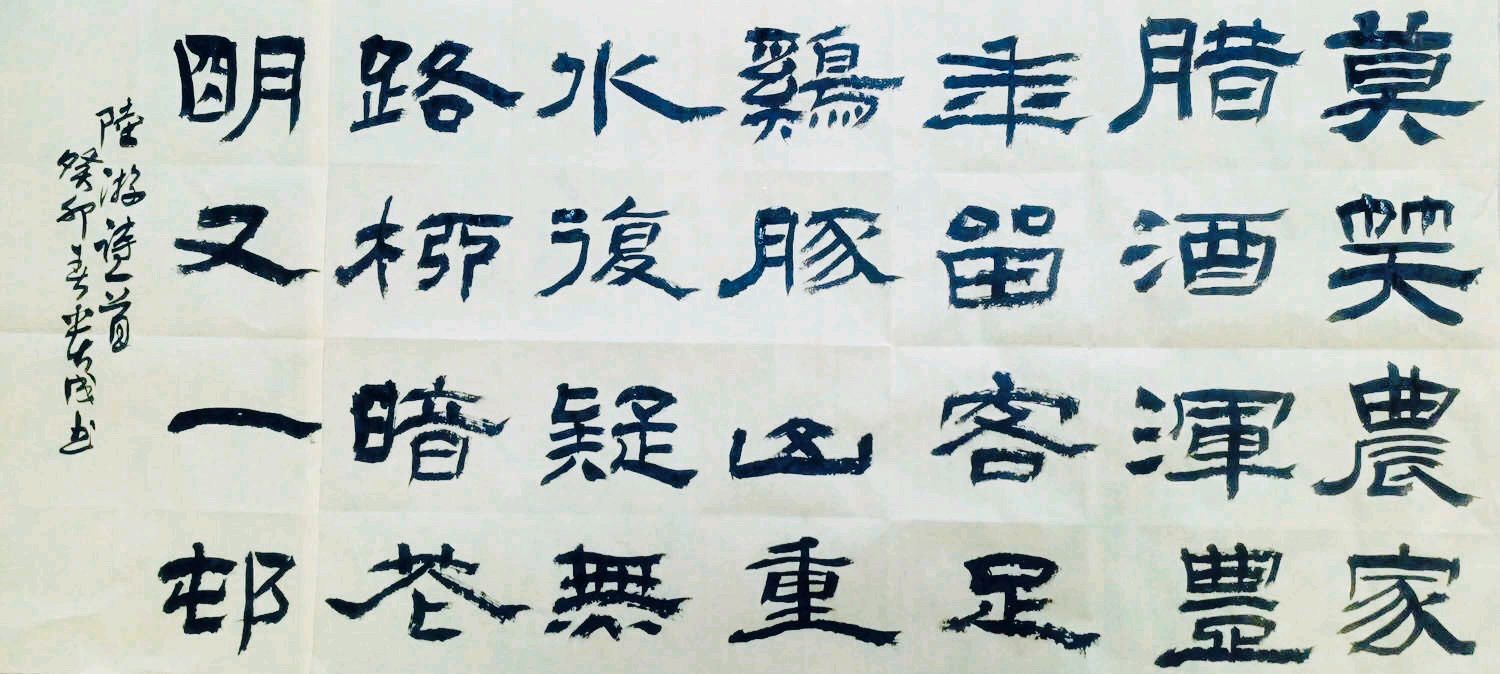 莫笑農家
腊酒渾豐
年留客足
鷄豚山重
水復疑無
路柳暗花
明又一邨
陸游詩一首
癸卯春大成书